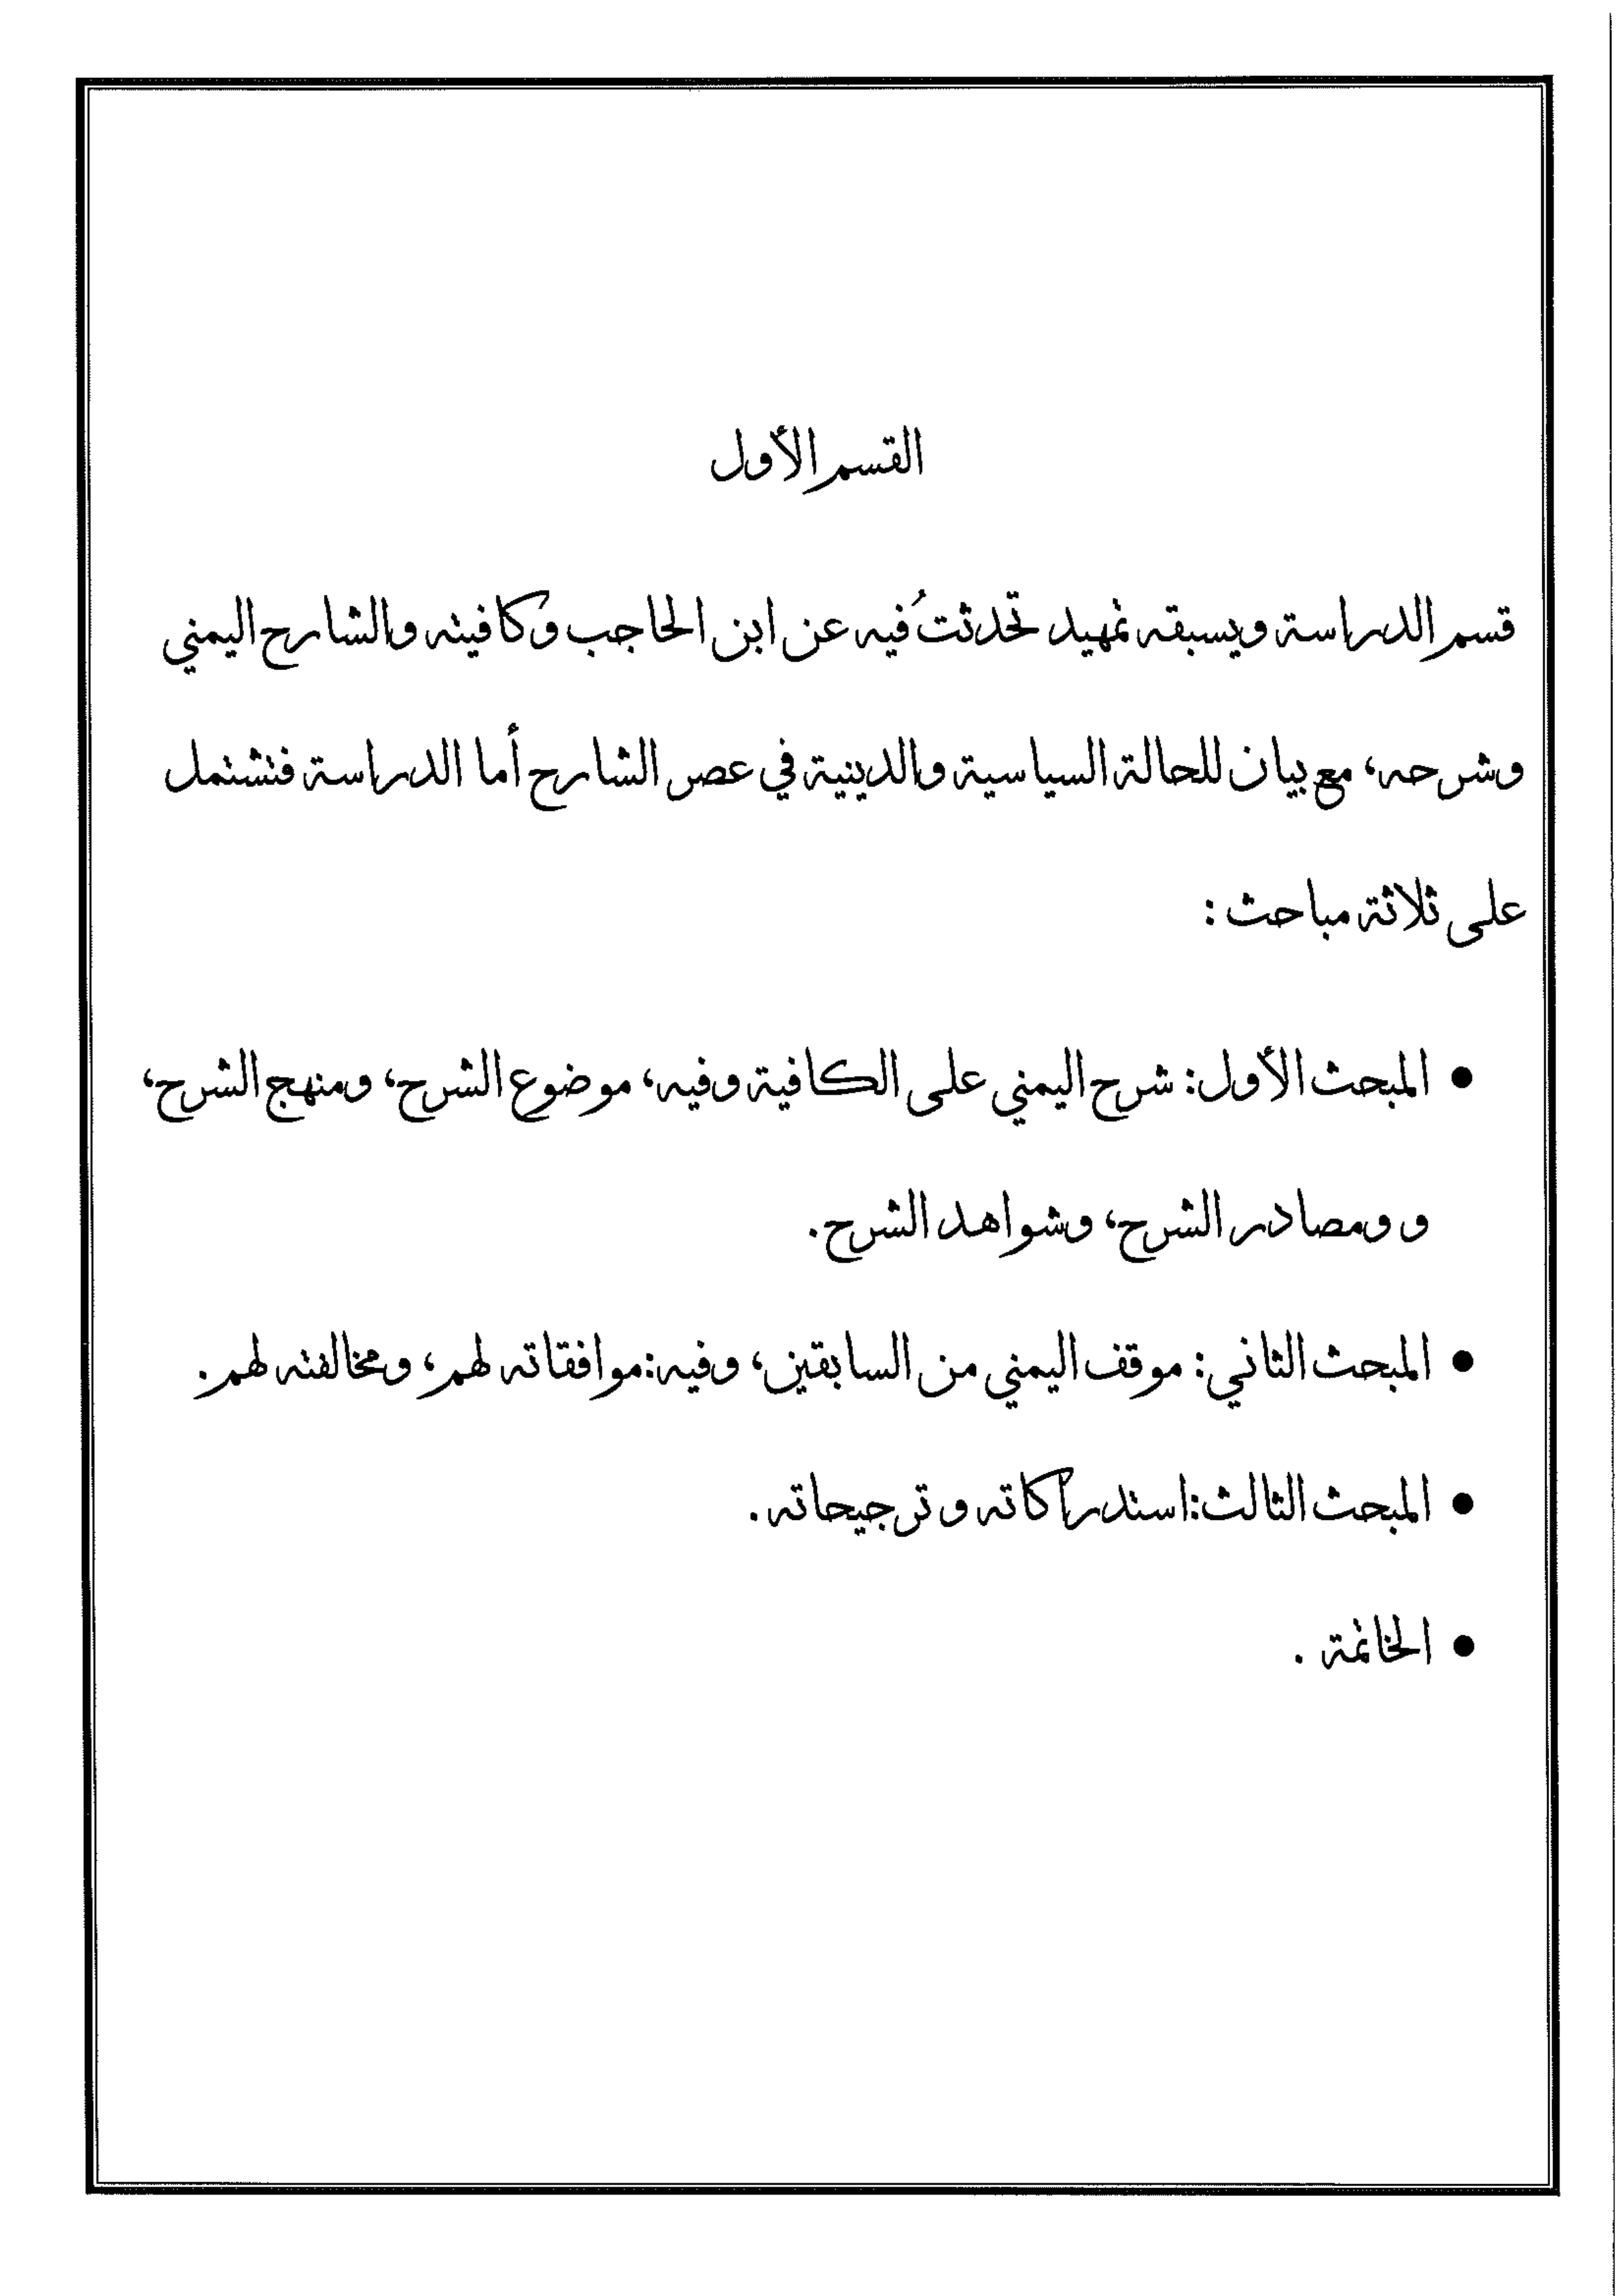 القسم الأول
قسم الدراسة ويسبقه تمهيد تحدثتُ فيه عن ابن الحاجب وكافيته والشارح اليمني
وشرحه، مع بيان للحالة السياسية والدينية في عصر الشارح أما الدراسة فتشتمل
على ثلاثة مباحث :
• المبحث الأول: شرح اليمني على الكافية وفيه، موضوع الشرح، ومنهج الشرح،
و ومصادر الشرح، وشواهد الشرح.
• المبحث الثاني: موقف اليمني من السابقين، وفيه:موافقاته لهم، ومخالفته لهم.
• المبحث الثالث:استدراكاته و ترجيحاته .
• الخاتمة .